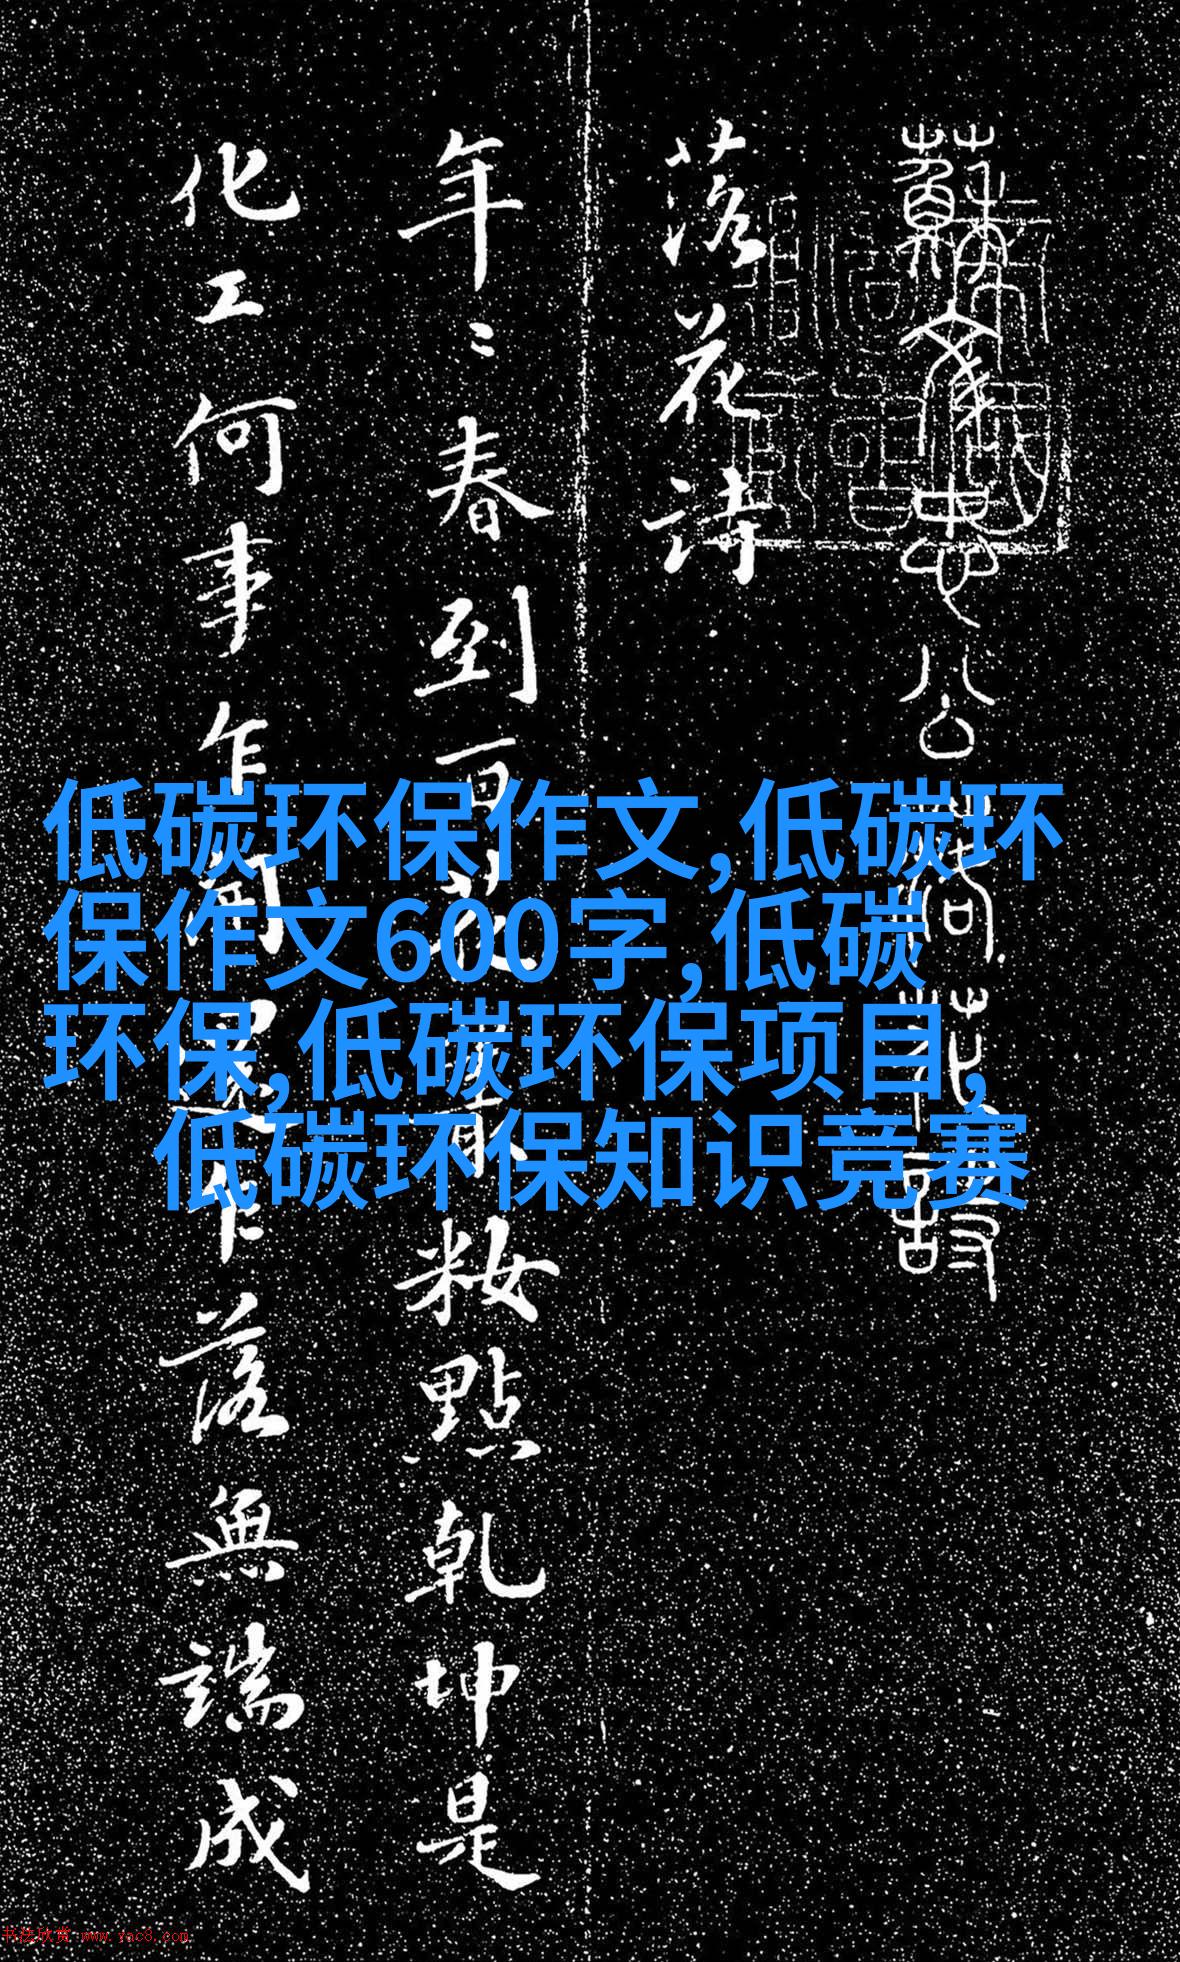 蘇文忠公
落花詩
年〻春到百花粧點乾坤是
化工何事乍開還乍落無端成
低碳环保作文,低碳环
保作文600字,低碳
环保,低碳环保项目,
低碳环保知识竞赛
书法欣赏 www.yac8.com